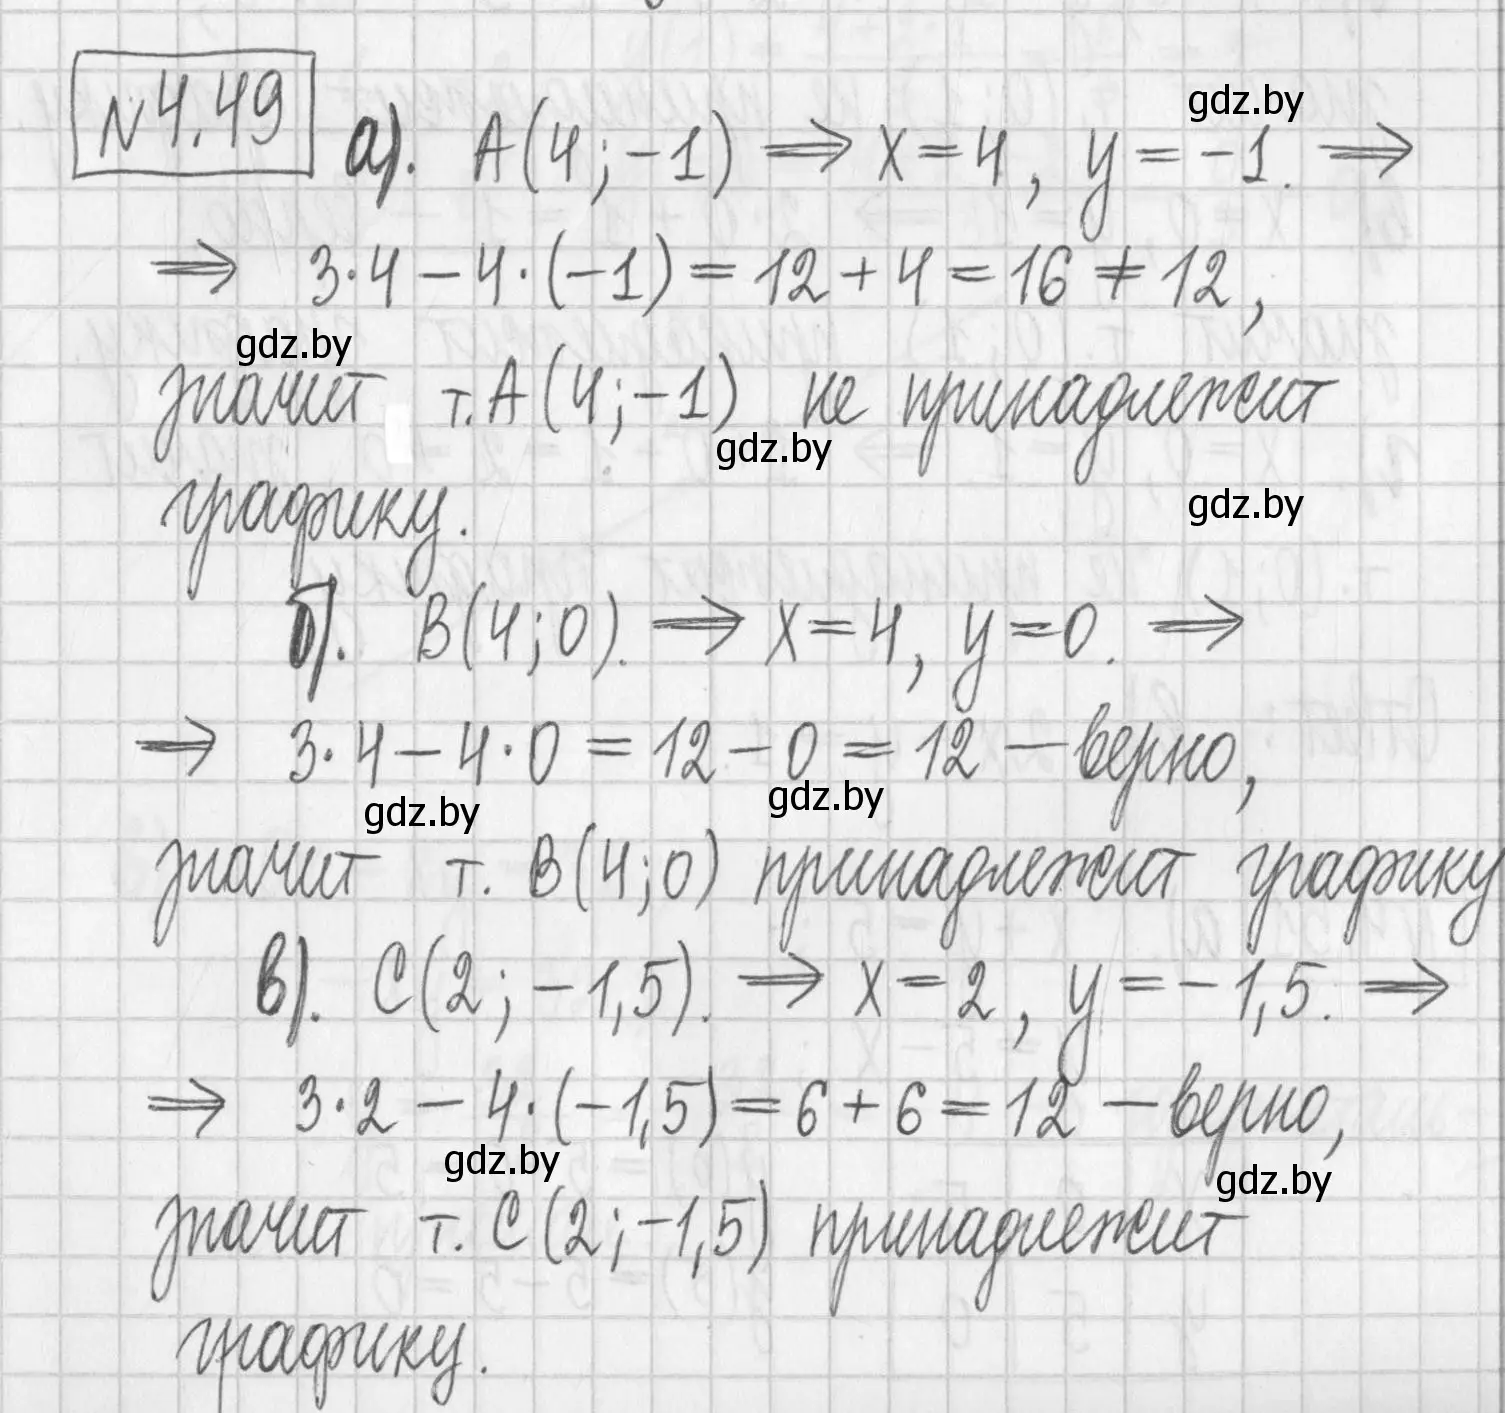 №4.49 а). A(4; -1) ⟹ x=4, y=-1. ⟹
gdz.by
⟹ 3·4 - 4·(-1) = 12+4 = 16 ≠ 12,
gdz.by
значит т.A(4;-1) не принадлежит
gdz.by
графику.
gdz.by
б). B(4;0). ⟹ x=4, y=0. ⟹
⟹ 3·4 - 4·0 = 12 - 0 = 12 — верно,
gdz.by gdz.by
значит т. B(4;0) принадлежит графику
в). C(2; -1,5). ⟹ x=2, y=-1,5. ⟹
⟹ 3·2 - 4·(-1,5) = 6+6 = 12 — верно,
gdz.by gdz.by
значит т. C(2;-1,5) принадлежит
графику.